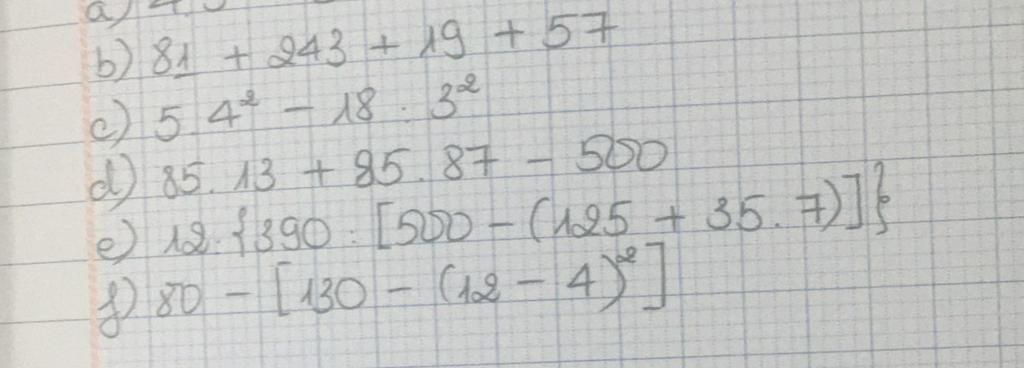 a)
b) 81 + 243 + 19 + 57
c) 5.4² - 18 : 3²
d) 85.13 + 85.87 - 500
e) 12.{390 : [500 - (125 + 35.7)]}
f) 80 - [130 - (12 - 4)²]